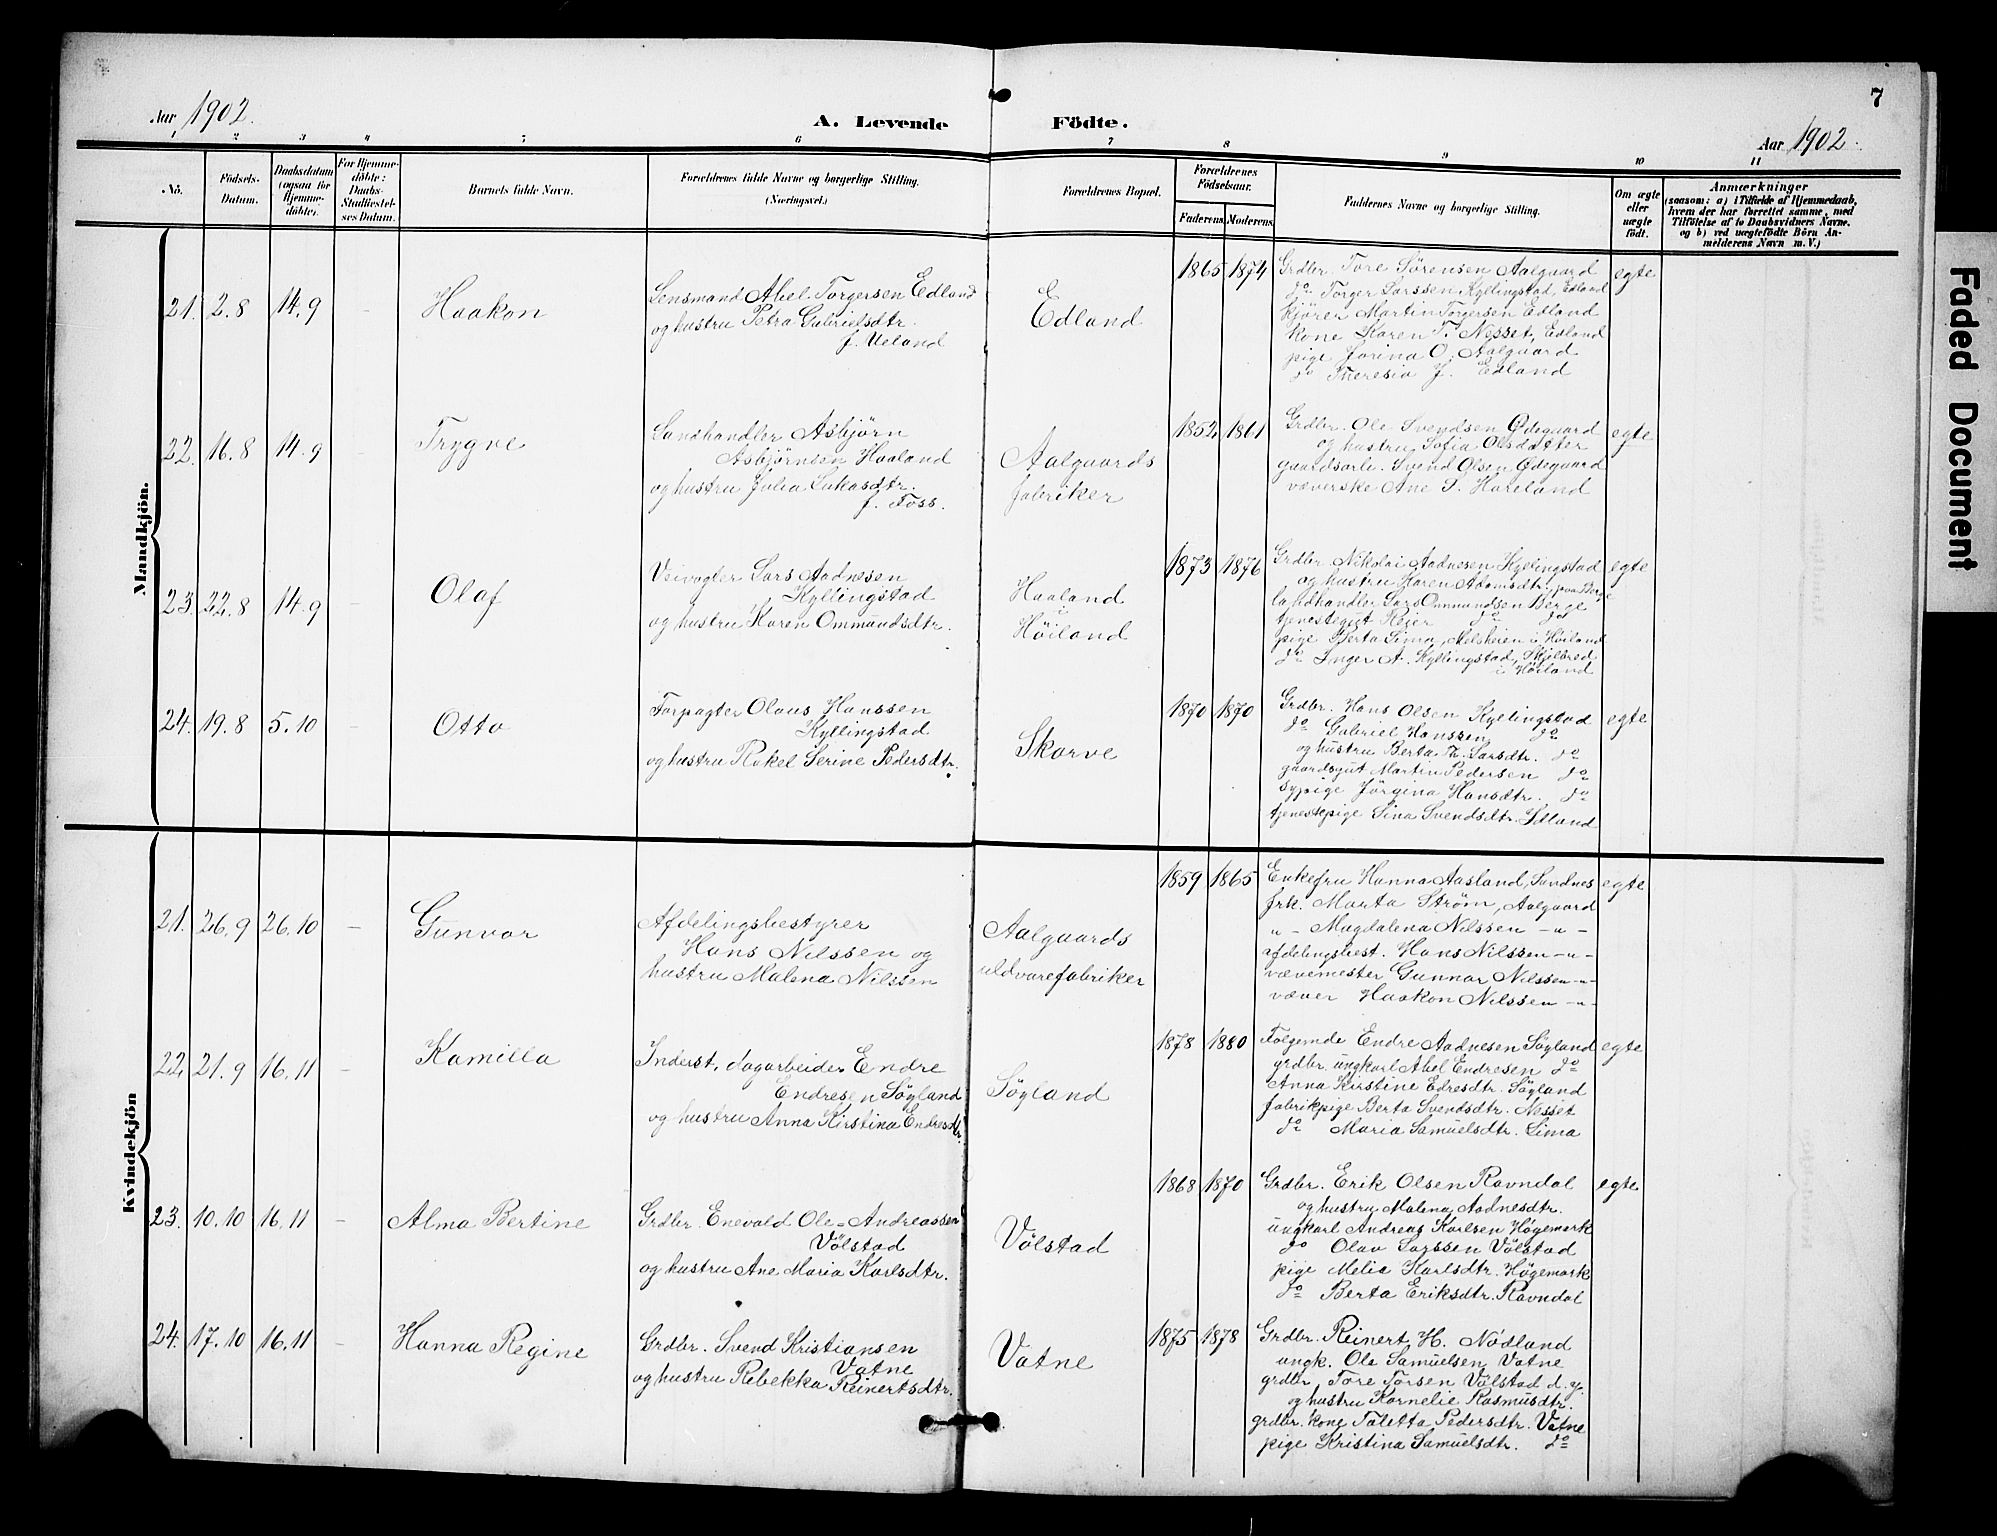 7
Aar 1902.
A. Levende Födte.
Aar 1902.
1 2 3 4 5 6 7 8 9 10 11
No.
Födsels-
Datum.
Daabsdatum
(ogsaa for
Hjemme-
döbte).
For Hjemme-
döbte:
Daabs-
Stadfæstel-
ses Datum.
Barnets fulde Navn.
Forældrenes fulde Navne og borgerlige Stilling.
(Næringsvei.)
Forældrenes Bopæl.
Forældrenes
Födselsaar.
Faderens. Moderens.
Faddernes Navne og borgerlige Stilling.
Om ægte
eller
uægte
födt.
Anmærkninger
(saasom: a) i Tilfælde af Hjemmedaab,
hvem der har forrettet samme, med
Tilföielse af to Daabsvidners Navne,
og b) ved uægtefödte Börn An-
melderens Navn m. V.)
Mandkjön.
21. 2.8 14.9 - Haakon
Lensmand Abel Torgersen Edland
og hustru Petra Gabrielsdtr.
f. Ueland
Edland
1865 1874
Grdbr. Tore Sørensen Aalgaard
do Torger Larssen Kyllingstad, Edland
kjører Martin Torgersen Edland
kone Karen T. Nesset, Edland
pige Jorina O. Aalgaard
do Theresia J. Edland
egte
22. 16.8 14.9 - Trygve
Landhandler Asbjørn
Asbjørnsen Haaland
og hustru Julia Lukasdtr.
f. Foss.
Aalgaards
fabriker
1852 1861
Grdbr. Ole Svendsen Ødegaard
og hustru Sofia Olsdatter
gaardsarb. Svend Olsen Ødegaard
væverske Ane T. Hareland
egte
23. 22.8 14.9 - Olaf
Veivogter Lars Aadnesen
Kyllingstad
og hustru Karen Ommundsdtr.
Haaland
i
Høiland
1873 1876
Grdbr. Nikolai Aadnesen Kyllingstad
og hustru Karen Adamsdtr, paa Berge
landhandler Lars Ommundsen Berge
tjenestegut Reier do do
pige Berta Lima, Melsheien i Høiland
do Inger A. Kyllingstad, Skjelbred
i Høiland
egte
24. 19.8 5.10 - Otto
Forpagter Olaus Hanssen
Kyllingstad
og hustru Rakel Serine Pedersdtr.
Skorve
1870 1870
Grdbr. Hans Olsen Kyllingstad
do Gabriel Hanssen do
og hustru Berta Th. Larsdtr. do
gaardsgut Martin Pedersen do
sypige Jørgina Hansdtr. do
tjenestepige Sina Svendsdtr. Idland
egte
Kvindekjön
21. 26.9 26.10 - Gunvor
Afdelingsbestyrer
Hans Nilssen og
hustru Malena Nilssen
Aalgaards
uldvarefabriker
1859 1865
Enkefru Hanna Aasland, Sandnes
frk. Marta Strøm, Aalgaard
u - Magdalena Nilssen - u -
afdelingsbest. Hans Nilssen - u -
vævemester Gunnar Nilssen - u -
væver Haakon Nilssen - u -
egte
22. 21.9 16.11 - Kamilla
Inderst, dagarbeider Endre
Endresen Søyland
og hustru Anna Kirstina Endresdtr.
Søyland
1878 1880
Følgemde Endre Aadnesen Søyland
grdbr. ungkarl Abel Endresen do
Anna Kirstine Edresdtr. Søyland
fabrikpige Berta Svendsdtr. Nesset
do Maria Samuelsdtr. Lima
egte
23. 10.10 16.11 - Alma Bertine
Grdbr. Enevald Ole-Andreassen
Vølstad
og hustru Ane Maria Karlsdtr.
Vølstad
1868 1870
Grdbr. Erik Olsen Ravndal
og hustru Malena Aadnesdtr.
ungkarl Andreas Karlsen Høgemark
do Olav Larssen Vølstad
pige Melia Karlsdtr. Høgemark
do Berta Eriksdtr. Ravndal
egte
24. 17.10 16.11 - Hanna Regine
Grdbr. Svend Kristiansen
Vatne
og hustru Rebekka Reinertsdtr.
Vatne
1875 1878
Grdbr. Reinert H. Nødland
ungk. Ole Samuelsen Vatne
grdbr, Tore Torsen Vølstad d. y.
og hustru Kornelie Rasmusdtr.
grdbr. kone Taletta Pedersdtr. Vatne
pige Kristina Samuelsdtr. do
Faded Document